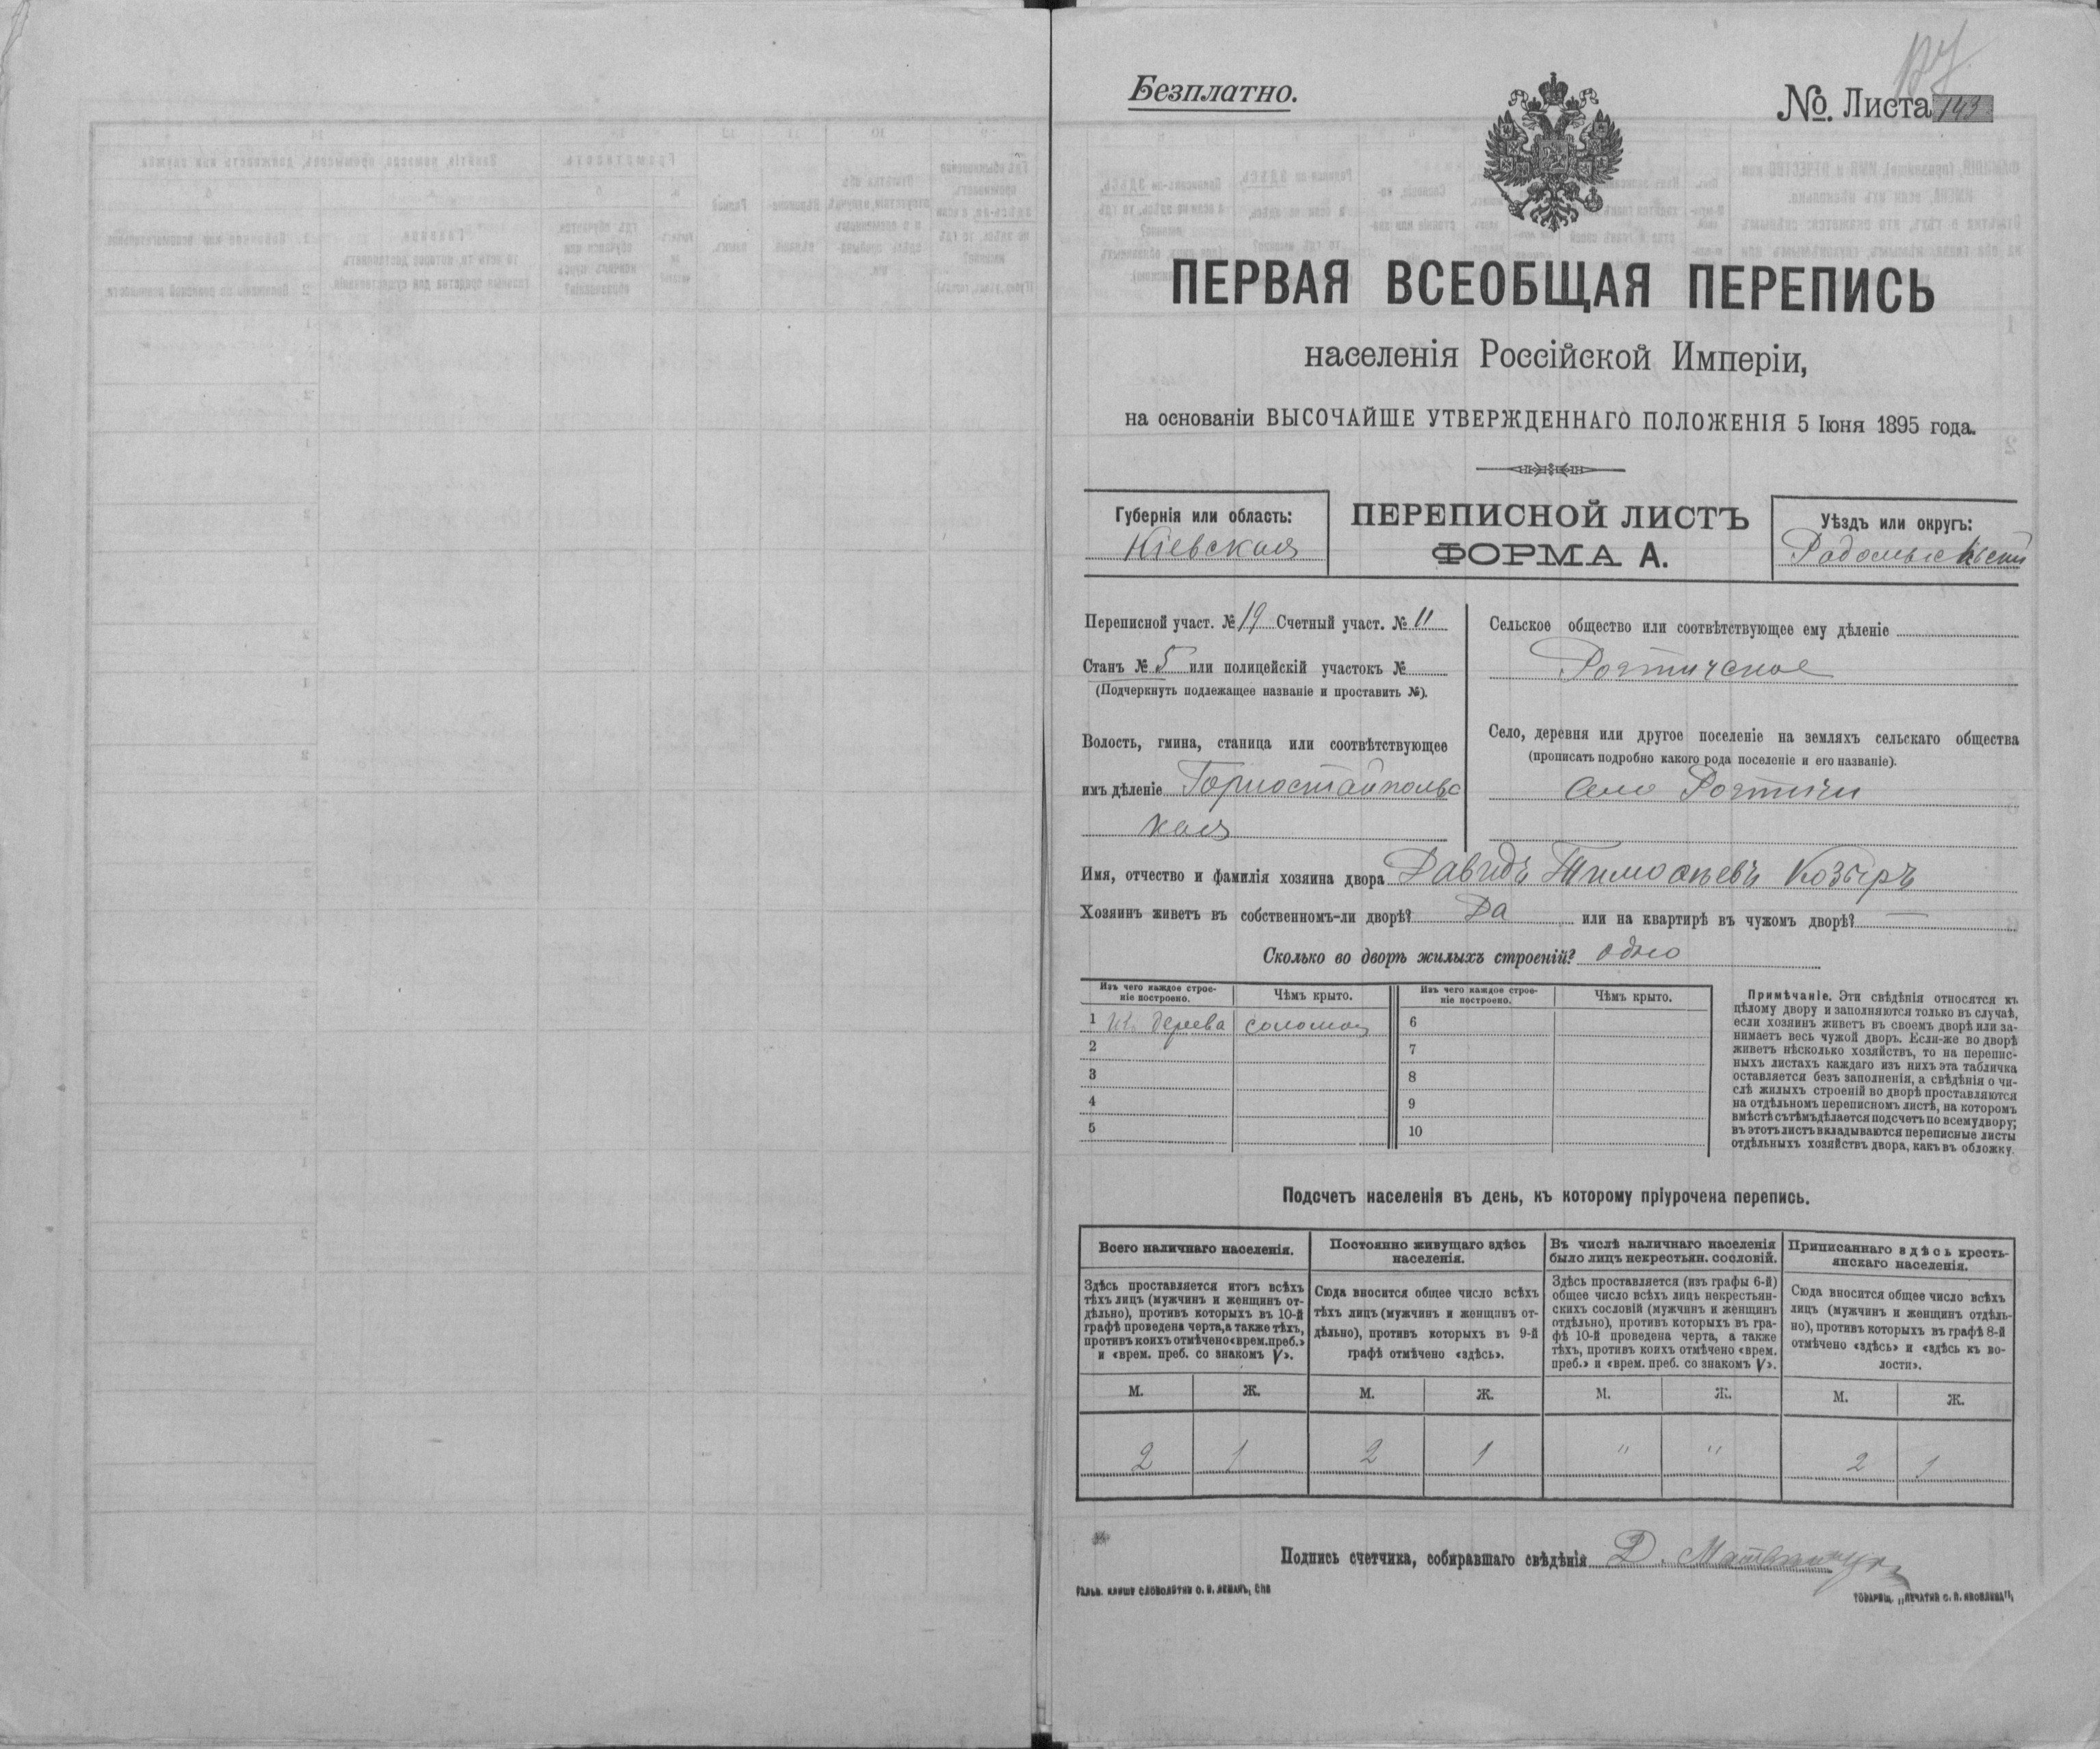 Безплатно.
No. Листа 143
ПЕРВАЯ ВСЕОБЩАЯ ПЕРЕПИСЬ
населенія Россійской Имперіи,
на основаніи ВЫСОЧАЙШЕ УТВЕРЖДЕННАГО ПОЛОЖЕНІЯ 5 Іюня 1895 года.
Губернія или область:
Кіевская
ПЕРЕПИСНОЙ ЛИСТЪ
ФОРМА А.
Уѣздъ или округъ:
Радомысльскій
Переписной участ. № 19 Счетный участ. № 11
Станъ № 5 или полицейскій участокъ №
(Подчеркнуть подлежащее названіе и проставить №).
Волость, гмина, станица или соотвѣтствующее
имъ дѣленіе Горностайпольс
кая
Сельское общество или соотвѣтствующее ему дѣленіе
Ротичское
Село, деревня или другое поселеніе на земляхъ сельскаго общества
(прописать подробно какого рода поселеніе и его названіе).
Село
Имя, отчество и фамилія хозяина двора Давидъ Тимофѣевъ Козыръ
Хозяинъ живетъ въ собственномъ-ли дворѣ? Да или на квартирѣ въ чужомъ дворѣ? —
Сколько во дворѣ жилыхъ строеній? одно
Изъ чего каждое строе-
ніе построено.
Чѣмъ крыто.
Изъ чего каждое строе-
ніе построено.
Чѣмъ крыто.
1 Изъ дерева соломою
2
3
4
5
6
7
8
9
10
Примѣчаніе. Эти свѣдѣнія относятся къ
цѣлому двору и заполняются только въ случаѣ,
если хозяинъ живетъ въ своемъ дворѣ или за-
нимаетъ весь чужой дворъ. Если-же во дворѣ
живетъ нѣсколько хозяйствъ, то на перепис-
ныхъ листахъ каждаго изъ нихъ эта табличка
оставляется безъ заполненія, а свѣдѣнія о чи-
слѣ жилыхъ строеній во дворѣ проставляются
на отдѣльномъ переписномъ листѣ, на которомъ
вмѣстѣ съ тѣмъ дѣлается подсчетъ по всему двору;
въ этотъ листъ вкладываются переписные листы
отдѣльныхъ хозяйствъ двора, какъ въ обложку.
Подсчетъ населенія въ день, къ которому пріурочена перепись.
Всего наличнаго населенія.
Здѣсь проставляется итогъ всѣхъ
тѣхъ лицъ (мужчинъ и женщинъ от-
дѣльно), противъ которыхъ въ 10-й
графѣ проведена черта, а также тѣхъ,
противъ коихъ отмѣчено «врем. преб.»
и «врем. преб. со знакомъ V».
Постоянно живущаго здѣсь
населенія.
Сюда вносится общее число всѣхъ
тѣхъ лицъ (мужчинъ и женщинъ от-
дѣльно), противъ которыхъ въ 9-й
графѣ отмѣчено «здѣсь».
Въ числѣ наличнаго населенія
было лицъ некрестьян. сословій.
Здѣсь проставляется (изъ графы 6-й)
общее число всѣхъ лицъ некрестьян-
скихъ сословій (мужчинъ и женщинъ
отдѣльно), противъ которыхъ въ гра-
фѣ 10-й проведена черта, а также
тѣхъ, противъ коихъ отмѣчено «врем.
преб.» и «врем. преб. со знакомъ V».
Приписаннаго здѣсь кресть-
янскаго населенія.
Сюда вносится общее число всѣхъ
лицъ (мужчинъ и женщинъ отдѣль-
но), противъ которыхъ въ графѣ 8-й
отмѣчено «здѣсь» и «здѣсь къ во-
лости».
М. Ж. М. Ж. М. Ж. М. Ж.
2 1 2 1 " " 2 1
Подпись счетчика, собиравшаго свѣдѣнія Д.
ТОВАРИЩ. „ПЕЧАТНЯ С. П. ЯКОВЛЕВА",